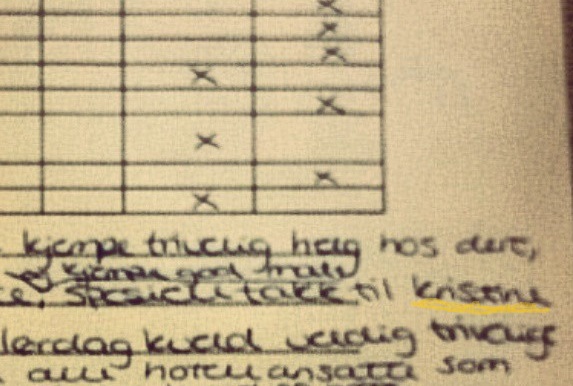 kjempe trivelig helg hos dere,
og kjempe god mat
spesiell takk til Kristine
lørdag kveld veldig trivelige
alle hotellansatte som